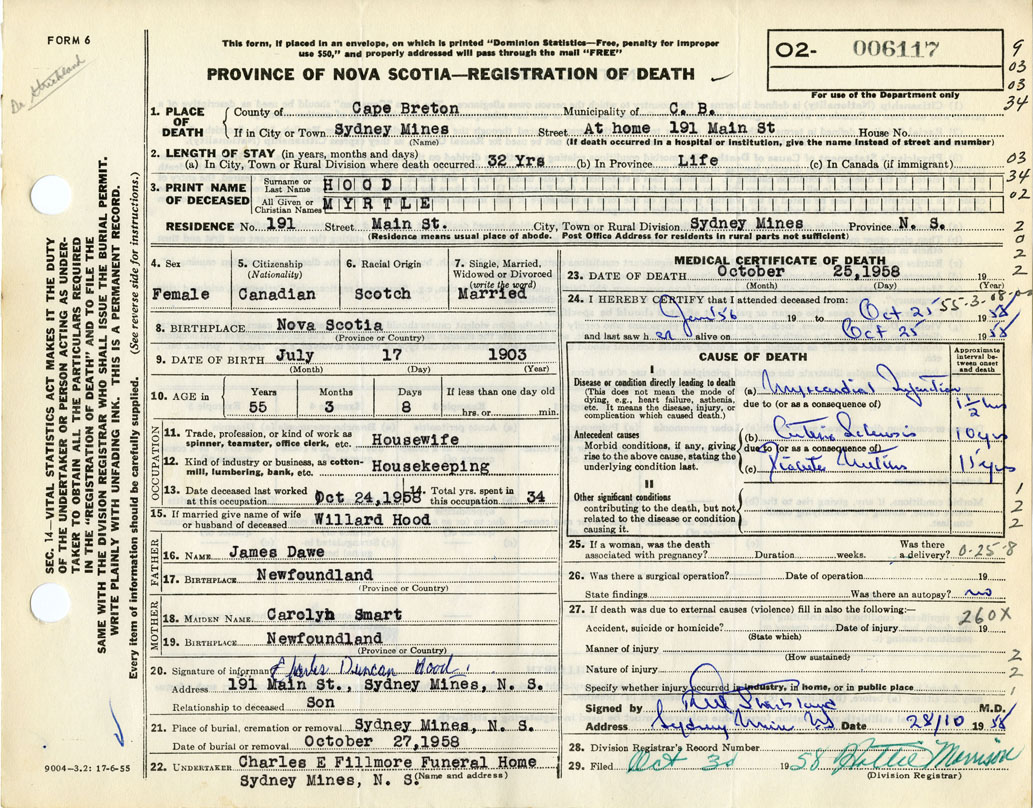 FORM 6
Dr Strickland
This form, if placed in an envelope, on which is printed "Dominion Statistics—Free, penalty for improper
use $50," and properly addressed will pass through the mail "FREE"
PROVINCE OF NOVA SCOTIA—REGISTRATION OF DEATH
02- 006117
For use of the Department only
9
03
03
34
03
34
02
2
0
2
2
1. PLACE OF DEATH
County of Cape Breton Municipality of C. B.
If in City or Town Sydney Mines Street At home 191 Main St House No.
(Name) (If death occurred in a hospital or institution, give the name instead of street and number)
2. LENGTH OF STAY (in years, months and days)
(a) In City, Town or Rural Division where death occurred 32 Yrs (b) In Province Life (c) In Canada (if immigrant)
3. PRINT NAME OF DECEASED
Surname or Last Name HOOD
All Given or Christian Names MYRTLE
RESIDENCE No. 191 Street Main St. City, Town or Rural Division Sydney Mines Province N. S.
(Residence means usual place of abode. Post Office Address for residents in rural parts not sufficient)
4. Sex
Female
5. Citizenship
(Nationality)
Canadian
6. Racial Origin
Scotch
7. Single, Married,
Widowed or Divorced
(write the word)
Married
8. BIRTHPLACE Nova Scotia
(Province or Country)
9. DATE OF BIRTH July 17 1903
(Month) (Day) (Year)
10. AGE in
Years Months Days If less than one day old
55 3 8 hrs. or min.
OCCUPATION
11. Trade, profession, or kind of work as
spinner, teamster, office clerk, etc. Housewife
12. Kind of industry or business, as cotton-
mill, lumbering, bank, etc. Housekeeping
13. Date deceased last worked
at this occupation Oct 24,1958
14. Total yrs. spent in
this occupation 34
15. If married give name of wife
or husband of deceased Willard Hood
FATHER
16. NAME James Dawe
17. BIRTHPLACE Newfoundland
(Province or Country)
MOTHER
18. MAIDEN NAME Carolyn Smart
19. BIRTHPLACE Newfoundland
(Province or Country)
20. Signature of informant Charles Duncan Hood
Address 191 Main St., Sydney Mines, N. S.
Relationship to deceased Son
21. Place of burial, cremation or removal Sydney Mines, N. S.
Date of burial or removal October 27,1958
22. UNDERTAKER Charles E Fillmore Funeral Home
Sydney Mines, N. S. (Name and address)
MEDICAL CERTIFICATE OF DEATH
23. DATE OF DEATH October 25,1958 19
(Month) (Day) (Year)
24. I HEREBY CERTIFY that I attended deceased from: 55-3-08
Jan '56 19 to Oct 25 1958
and last saw h er alive on Oct 25 1958
CAUSE OF DEATH
Approximate interval between onset and death
I
Disease or condition directly leading to death
(This does not mean the mode of
dying, e.g., heart failure, asthenia,
etc. It means the disease, injury, or
complication which caused death.)
(a) Myocardial Infarction 1 1/2 hrs
due to (or as a consequence of)
Antecedent causes
Morbid conditions, if any, giving
rise to the above cause, stating the
underlying condition last.
(b) Arterio Sclerosis 10 yrs
due to (or as a consequence of)
(c) Diabetes Mellitus 15 yrs
II
Other significant conditions
contributing to the death, but not
related to the disease or condition
causing it.
1
2
2
25. If a woman, was the death
associated with pregnancy? Duration weeks.
Was there
a delivery? 0-25-8
26. Was there a surgical operation? Date of operation 19
State findings Was there an autopsy? no
27. If death was due to external causes (violence) fill in also the following:—
260X
Accident, suicide or homicide? Date of injury 19
(State which)
Manner of injury 2
(How sustained)
Nature of injury 2
Specify whether injury occurred in industry, in home, or in public place 1
Signed by Strickland M.D.
Address Sydney Mines NS Date 28/10 1958
28. Division Registrar's Record Number
29. Filed Oct 30 1958 Hattie Morrison
(Division Registrar)
SEC. 14—VITAL STATISTICS ACT MAKES IT THE DUTY
OF THE UNDERTAKER OR PERSON ACTING AS UNDER-
TAKER TO OBTAIN ALL THE PARTICULARS REQUIRED
IN THE "REGISTRATION OF DEATH" AND TO FILE THE
SAME WITH THE DIVISION REGISTRAR WHO SHALL ISSUE THE BURIAL PERMIT.
WRITE PLAINLY WITH UNFADING INK. THIS IS A PERMANENT RECORD.
Every item of information should be carefully supplied. (See reverse side for instructions.)
9004-3.2: 17-6-55